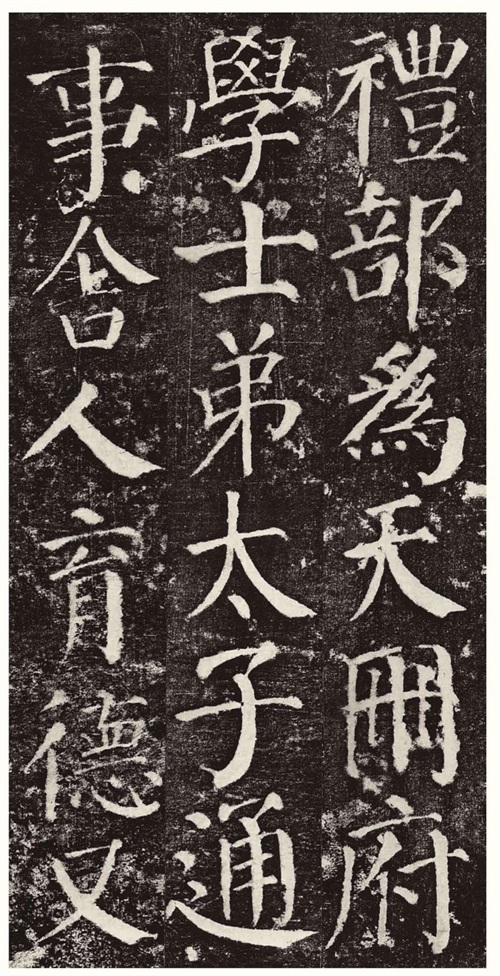 禮部為天冊府
學士弟太子通
事舍人育德又